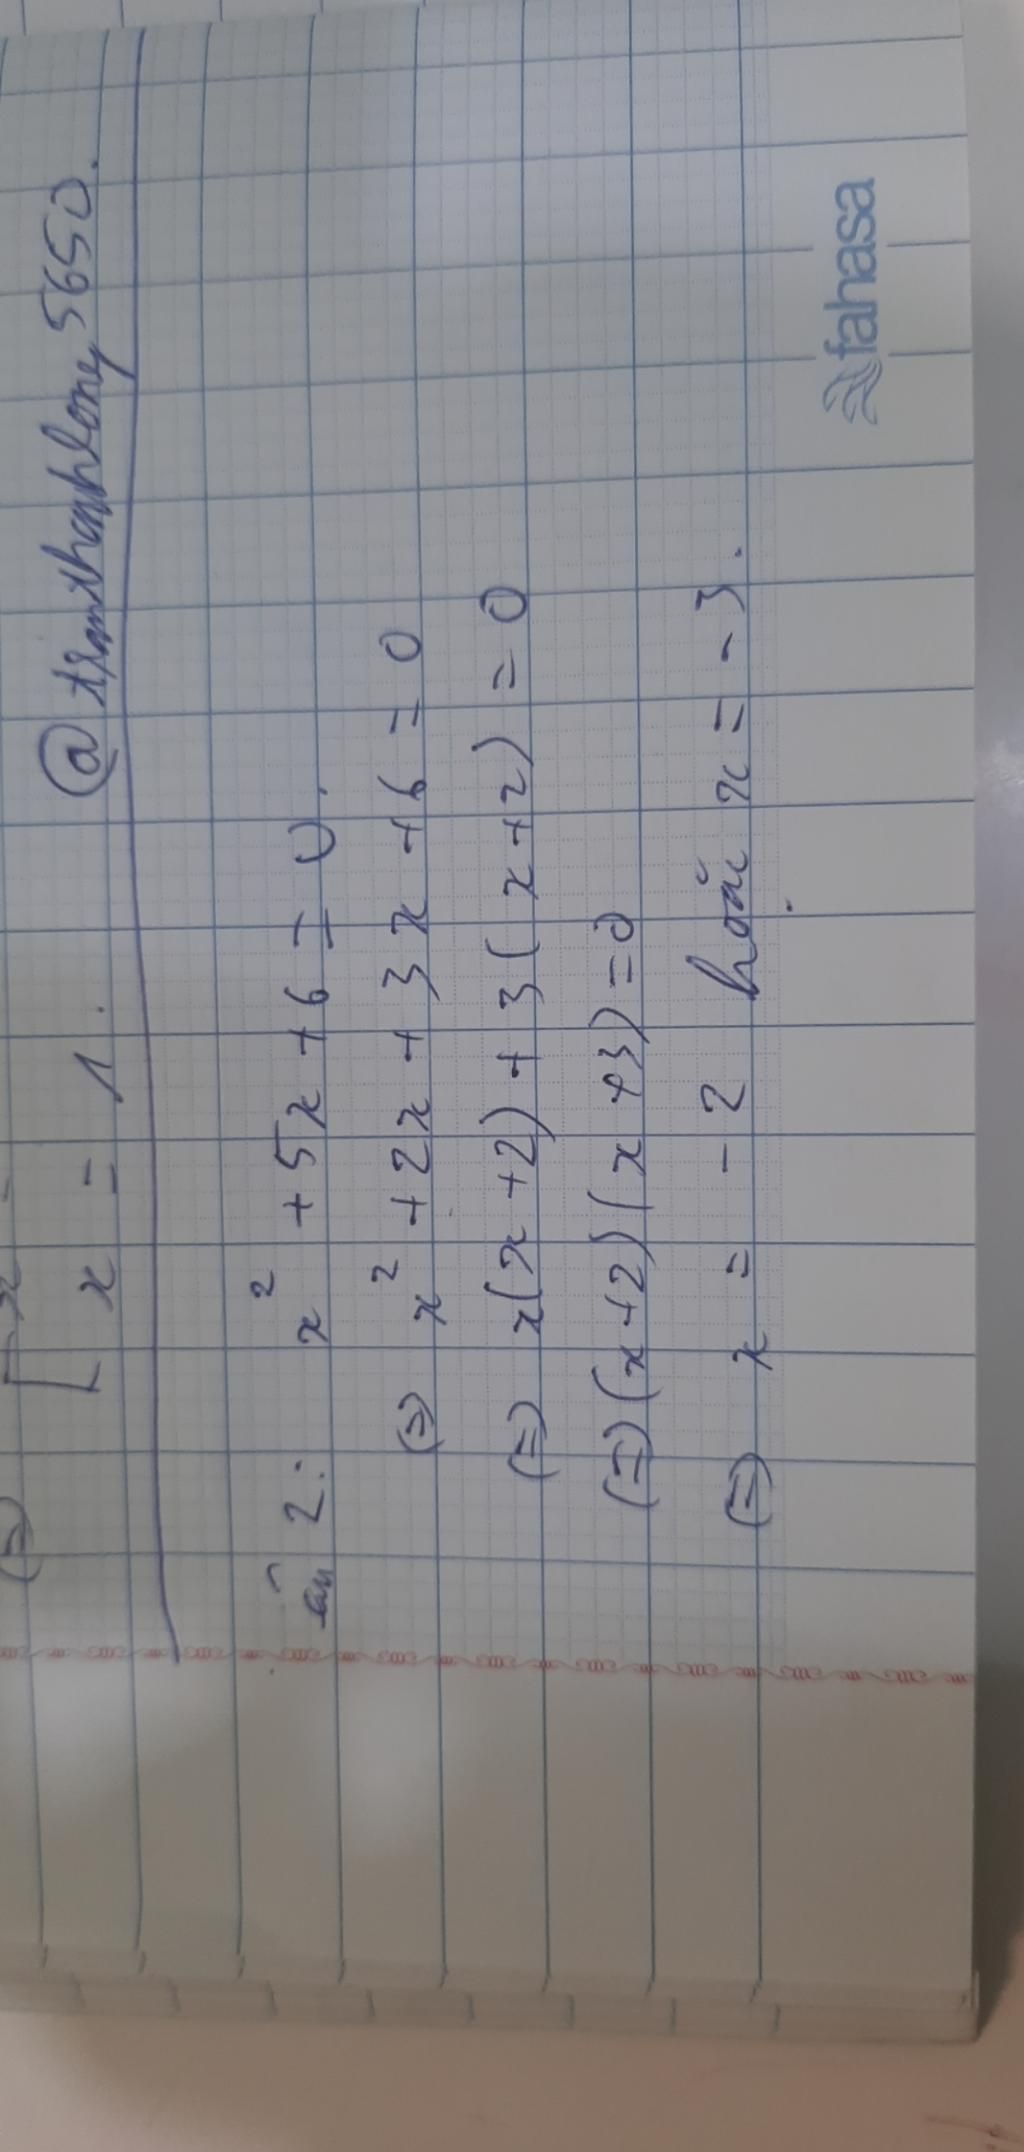 (=)
x = 1.
@tranthanhlong5650.
2: x² + 5x + 6 = 0.
(=) x² + 2x + 3x + 6 = 0
(=) x(x + 2) + 3(x + 2) = 0
(=) (x + 2)(x + 3) = 0
(=) x = - 2 hoặc x = - 3.
fahasa